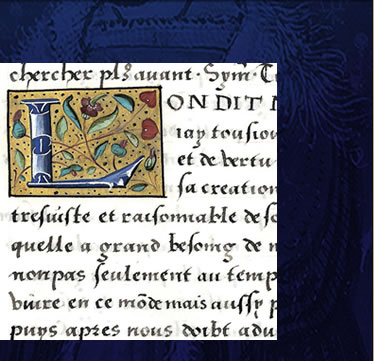 chercher plꝰ auant · Sym̃· T
LONDIT
iay tousiou
et de bertu
sa creation
tresuiste et raisonnable de so
quelle a grand besoing de n
nonpas seulement au temp
viure en ce mõde mais aussy p
puys apres nous doibt adu